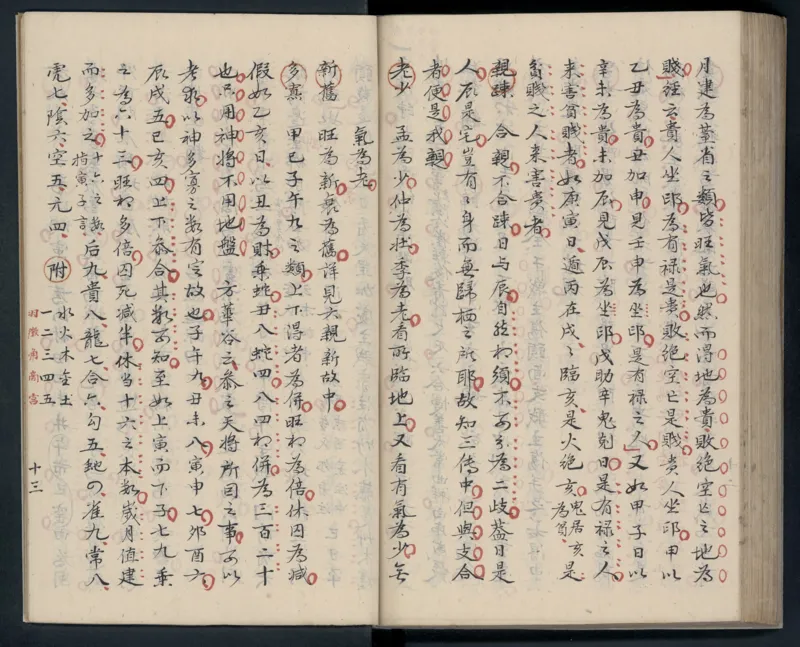 月建為臺省之類皆旺氣也然而得地為貴敗絕空亡之地為
賤經云貴人坐卯為有祿是囊敗絕空亡是賤貴人坐卯申以
乙丑為貴丑加申見壬申為坐卯是有祿之人又如甲子日以
辛未為貴未加辰見戊辰為坐卯戊助辛鬼剋日是有祿之人
來害貧賤者如庚寅日遁丙在戌戌臨亥是火絕亥鬼居亥為貧是
貧賤之人來害貴者
親疎 合親不合疎日与辰自結利須不 分為二歧蓋日是
人辰是宅豈有有身而無歸栖之所耶故知三傳中但與支合
者便是我親
老少 孟為少仲為壯季為老看所臨地上又看有氣為少無
氣為老
新舊 旺為新衰為舊詳見六親新故中
多寡 甲己子午九之類上下得者為併旺相為倍休囚為減
假如乙亥日以丑為財乘蛇丑八蛇四八四相併為三百二十
也已用神將不用地盤 方華谷云叅之天將所因之事 以
考 以神多寡之數有定故也子午九丑未八寅申七卯酉六
辰戌五巳亥四上下叅合其數 知至如上寅而下子七九乘
之為六十三旺相多倍囚死減半休当十六之本數歲月值建
而多加之十六之数指寅子言后九貴八龍七合六勾五蛇四雀九常八
虎七陰六空五元四 附 水火木金土
一二三四五
羽徵角商宮
十三